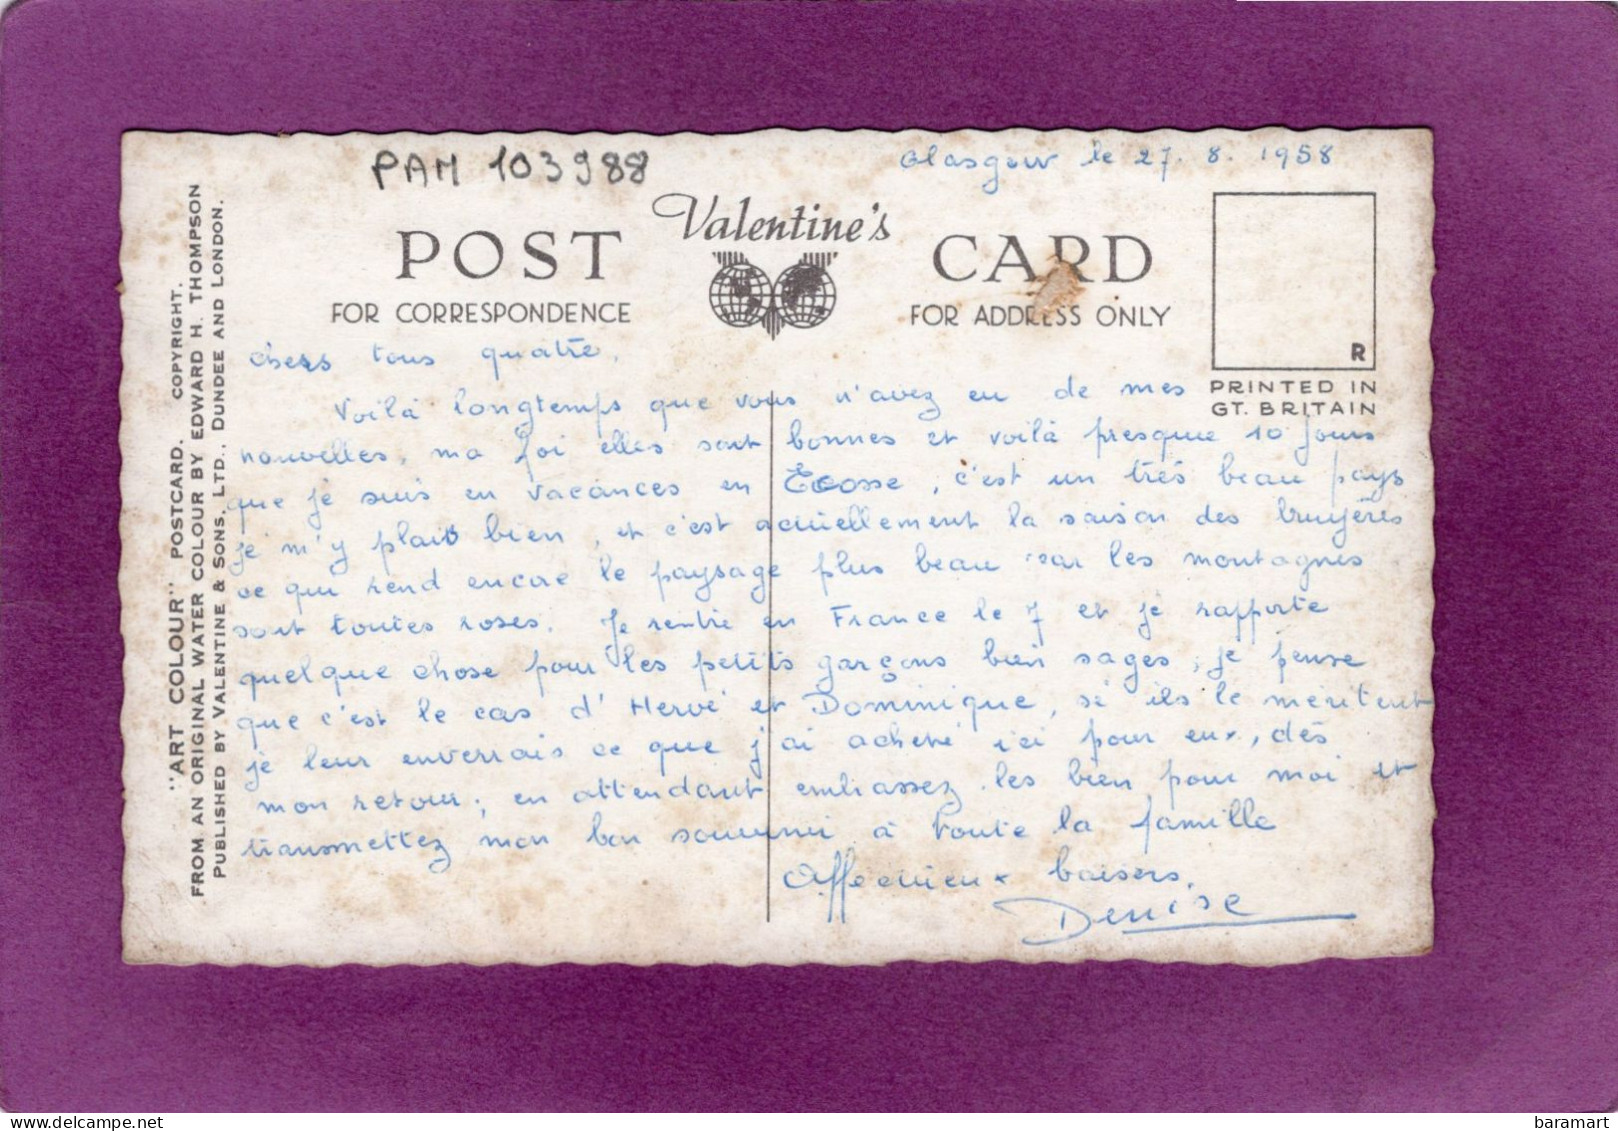 PAM 103988
Glasgow le 27. 8. 1958
Valentine's
POST CARD
FOR CORRESPONDENCE FOR ADDRESS ONLY
R
PRINTED IN
GT. BRITAIN
"ART COLOUR" POSTCARD. COPYRIGHT.
FROM AN ORIGINAL WATER COLOUR BY EDWARD H. THOMPSON
PUBLISHED BY VALENTINE & SONS, LTD., DUNDEE AND LONDON.
chers tous quatre,
Voilà longtemps que vous n'avez eu de mes
nouvelles, ma foi elles sont bonnes et voilà presque 10 jours
que je suis en vacances en Ecosse, c'est un très beau pays
je m'y plais bien, et c'est actuellement la saison des bruyères
ce qui rend encore le paysage plus beau car les montagnes
sont toutes roses. Je rentre en France le 7 et je rapporte
quelque chose pour les petits garçons bien sages, je pense
que c'est le cas d'Hervé et Dominique, si ils le méritent
je leur enverrais ce que j'ai acheté ici pour eux, dès
mon retour; en attendant embrassez-les bien pour moi et
transmettez mon bon souvenir à toute la famille
Affectueux baisers,
Denise
baramart